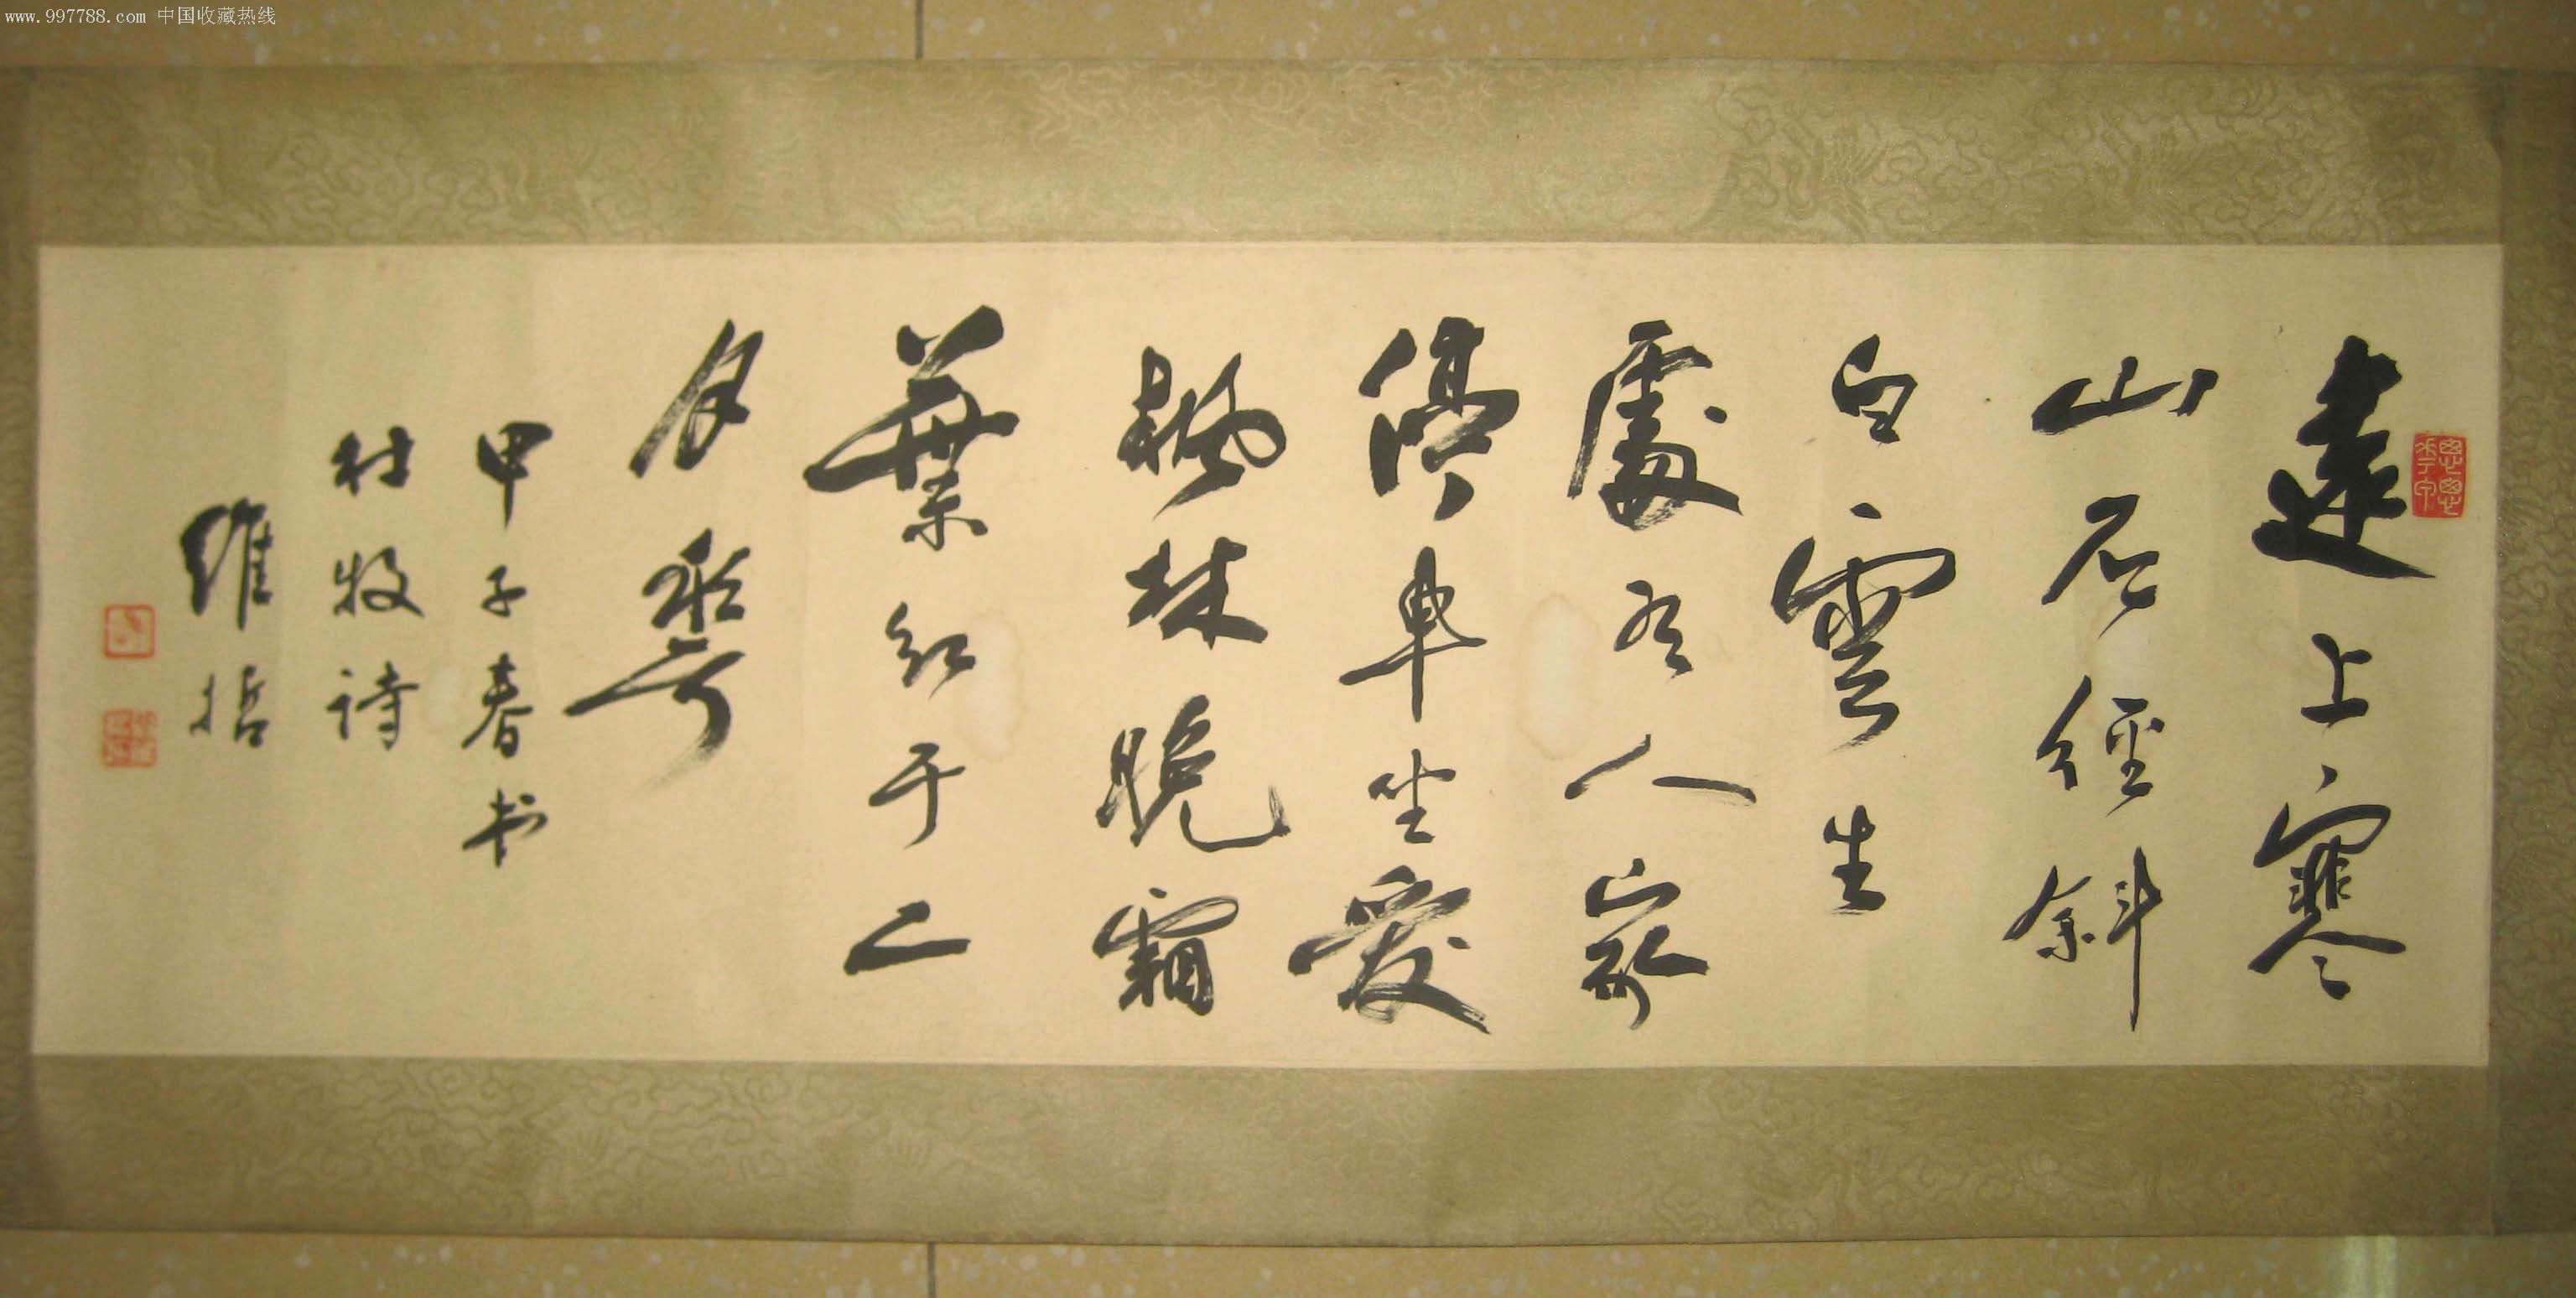 www.997788.com 中国收藏热线
遠上寒
山石徑斜
白雲生
處有人家
停車坐愛
楓林晚霜
葉紅于二
月𠌶
甲子春书
杜牧詩
維哲